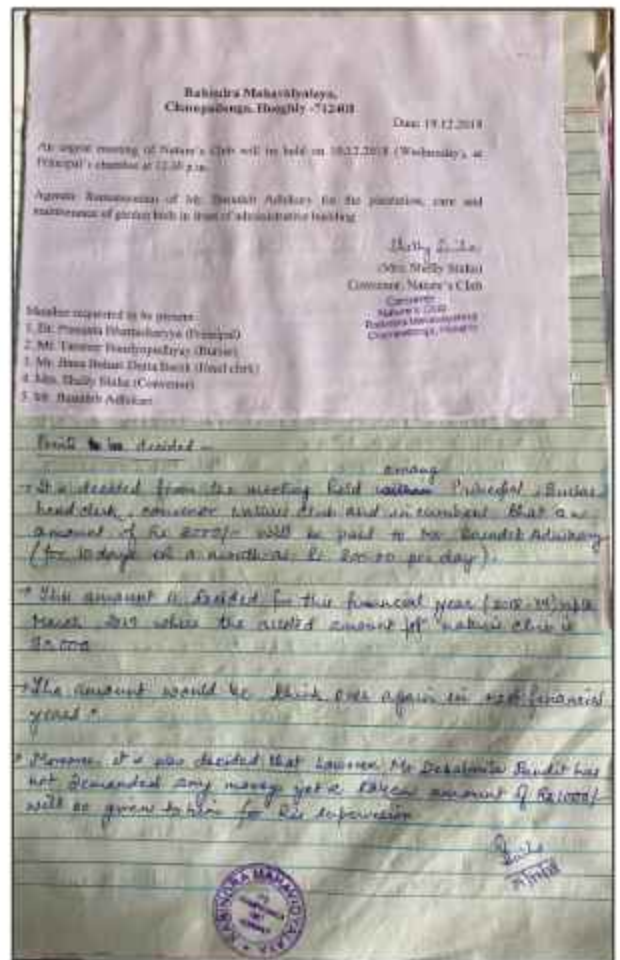 Rabindra Mahavidyalaya,
Champadanga, Hooghly -712401
Date: 19.12.2018
An urgent meeting of Nature's Club will be held on 19.12.2018 (Wednesday), at
Principal's chamber at 12.30 p.m.
Agenda: Remuneration of Mr. Adhikary for the plantation, care and
maintenance of garden beds in front of administrative building
(Mrs. Shelly Sinha)
Convenor, Nature's Club
Convenor
Nature's Club
Rabindra Mahavidyalaya
Champadanga, Hooghly
Member requested to be present
1. Dr. Prasanta Bhattacharyya (Principal)
2. Mr. Bandyopadhyay (Bursar)
3. Mr. Behari Dutta (Head clerk)
4. Mrs. Shelly Sinha (Convenor)
5. Mr. Adhikari
Points to be decided -
among
It is decided from the meeting held Principal, Bursar
head clerk, convenor nature club and incumbent that an
amount of Rs 2000/- will be paid to Mr
(for 10 days in a month as Rs 200.00 per day).
This amount is decided for this financial year (2018-19) upto
March 2019 where the amount for nature club is
The amount would be think over again in next financial
years.
Moreover it is also decided that however Mr Pandit has
not demanded any money yet a amount of Rs 1000/-
will be given to him for his supervision
RABINDRA MAHAVIDYALAYA